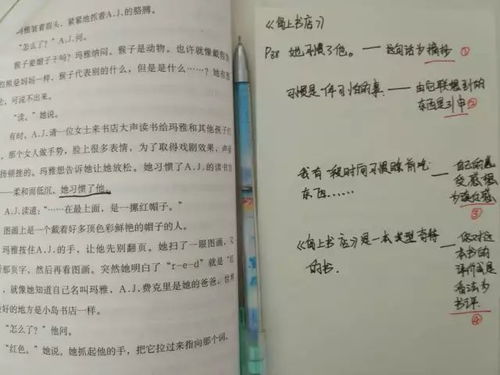 玛雅皱着眉头，紧紧地抓着A.J.的胳膊。
“怎么了？”A.J.问。
猴子要帽子干吗？玛雅纳闷。猴子是动物。也许就像戴假发
猴熊是妈妈一样，猴子代表别的什么，但是是什么……？她有想
，可说不出来。
“读。”她说。
有时，A.J.请一位女士来书店大声读书给玛雅和其他孩子们
那个女人做手势，脸上很多表情，为了取得戏剧效果，声音
扬顿挫的。玛雅想告诉她让她放松。她习惯了A.J.的读书方
——柔和而低沉。她习惯了他。
A.J.读道：“……在最上面，是一摞红帽子。”
图画上是一个戴着好多顶色彩鲜艳的帽子的人。
玛雅按住A.J.的手，让他先别翻页。她扫了一眼图画，又
那页字，然后再看图画。突然她明白了“r-e-d”就是“红
就像她知道自己名叫玛雅、A.J.费克里是她的爸爸、世界
好的地方是小岛书店一样。
“怎么了？”他问。
“红色。”她说，她抓起他的手，把它拉过来指向那个词。
《岛上书店》
P38 她习惯了他。——这句话步摘抄 ①
习惯是件可怕的事——由它联想到的
东西是引申 ②
我有一段时间习惯睡前吃
东西……
自己的感
受感想
③
《岛上书店》是一本类型奇特
的书.
你对这
本书的
评价或是
看法步
书评.
④